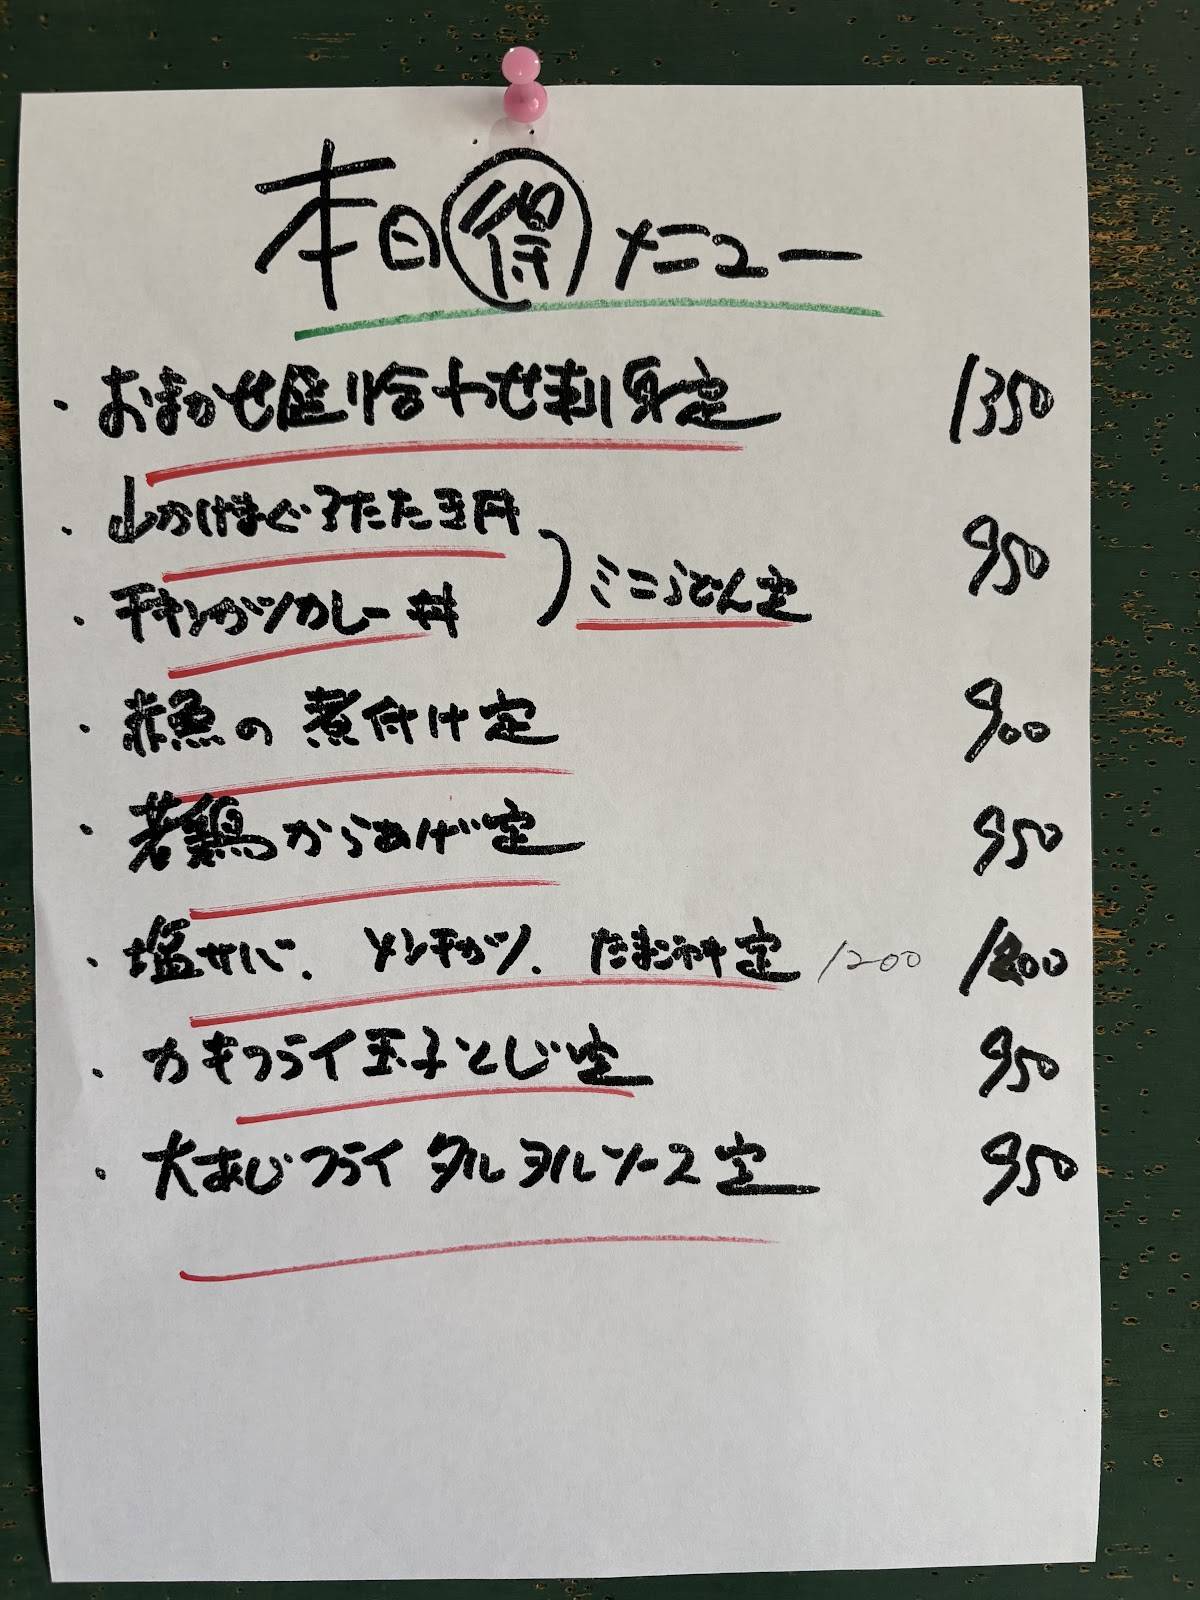 本日得メニュー
・おまかせ盛り合わせ刺身定 1350
・山かけまぐろたたき丼
・チキンカツカレー丼 ) ミニうどん定 950
・赤魚の煮付け定 900
・若鶏からあげ定 950
・塩サバ、メンチカツ、たまご料定 1200 1200
・カキフライ玉子とじ定 950
・大あじフライタルタルソース定 950